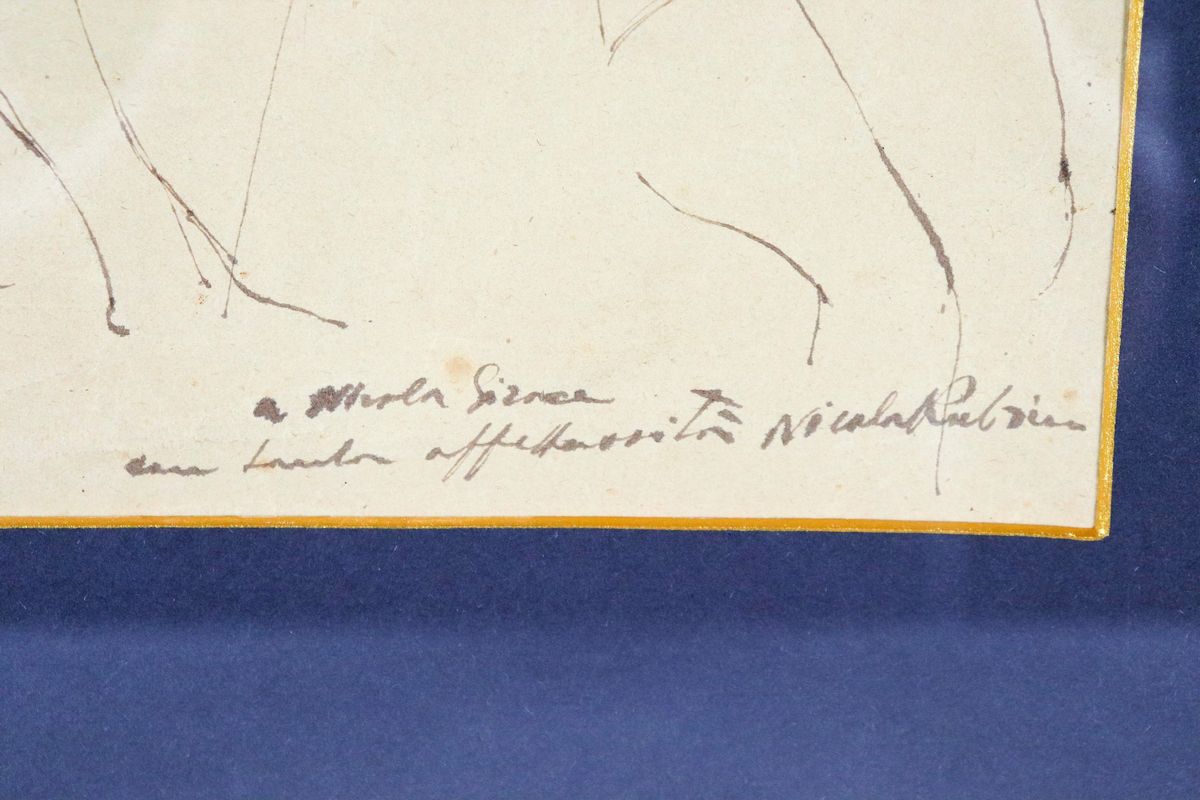 a Nicola Sirace
con tanta affettuosità Nicola Rubino